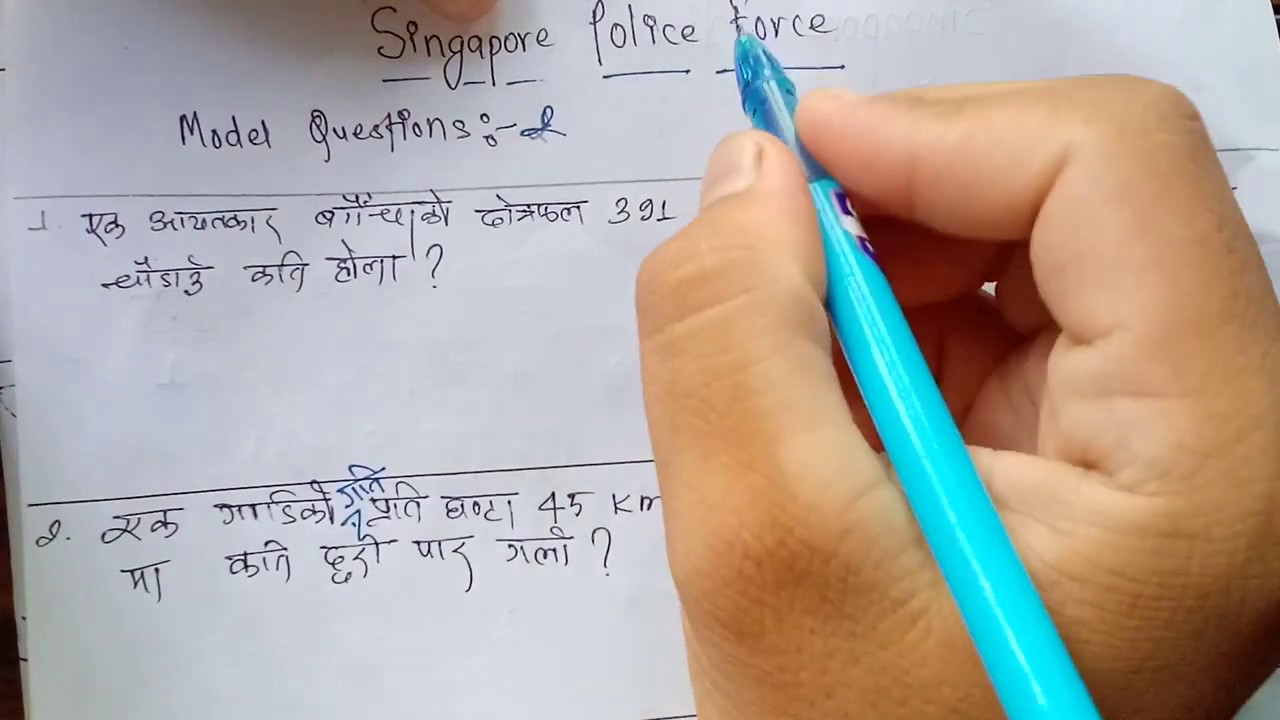 Singapore Police Force
Model Questions:- 2
1. एक आयतकार बगैंचाको क्षेत्रफल 391
चौडाई कति होला ?
2. एक गाडिको गति प्रति घण्टा 45 Km
मा कति दुरी पार गर्ला ?